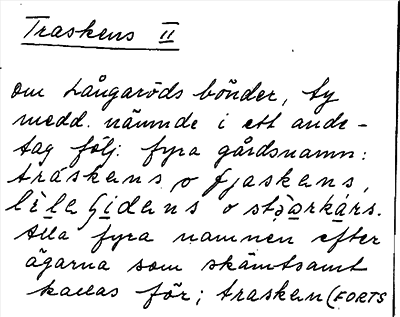 Traskens II
om Långaröds bönder, ty
medd. nämnde i ett ande-
tag följ. fyra gårdsnamn:
tráskens o fjaskens,
lìle Gidens o stòarkárs.
Alla fyra namnen efter
ägarna som skämtsamt
kallas för; trasken (FORTS